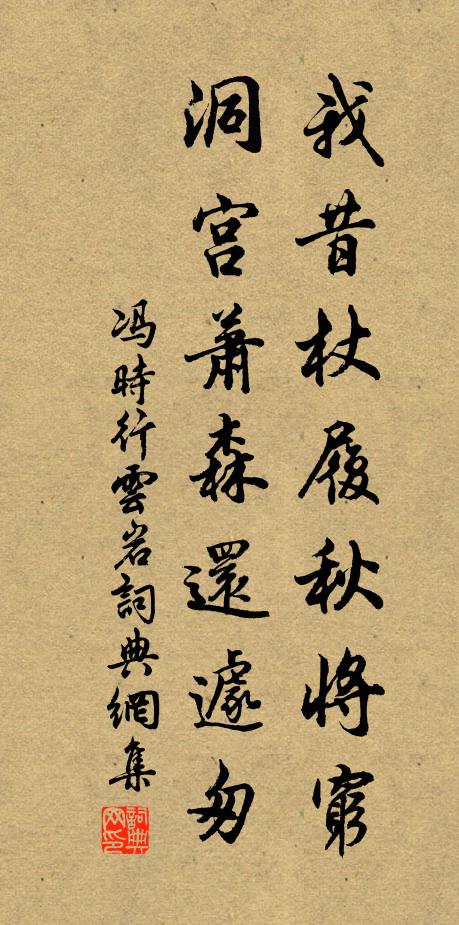 我昔杖履秋將窮
洞宮蕭森還遽匆
馮時行雲岩詞典網集
詞典网印